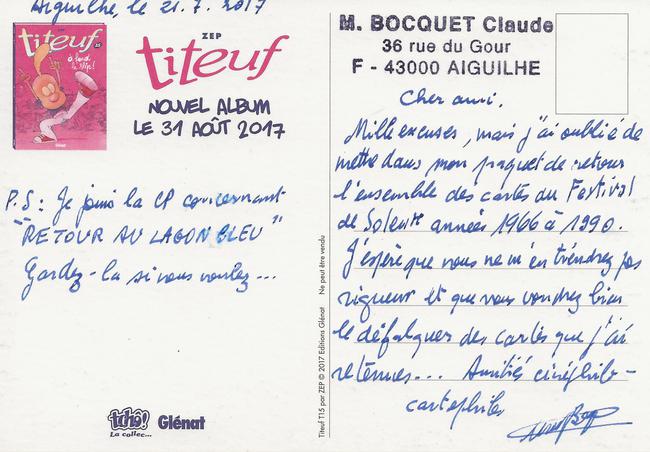 Aiguilhe, le 21.7.2017
ZEP
titeuf
à fond le slip!
Glénat
ZEP
titeuf
NOUVEL ALBUM
LE 31 AOÛT 2017
P.S: Je joins la CP concernant
"RETOUR AU LAGON BLEU"
Gardez-la si vous voulez...
tchô!
La collec...
Glénat
Titeuf T15 par ZEP © 2017 Editions Glénat
Ne peut être vendu
M. BOCQUET Claude
36 rue du Gour
F - 43000 AIGUILHE
Cher ami,
Mille excuses, mais j'ai oublié de
mettre dans mon paquet de retour
l'ensemble des cartes du Festival
de années 1966 à 1990.
J'espère que vous ne m'en tiendrez pas
rigueur et que vous voudrez bien
le défalquer des cartes que j'ai
retenues... Amitiés cinéphilo-
cartophiles